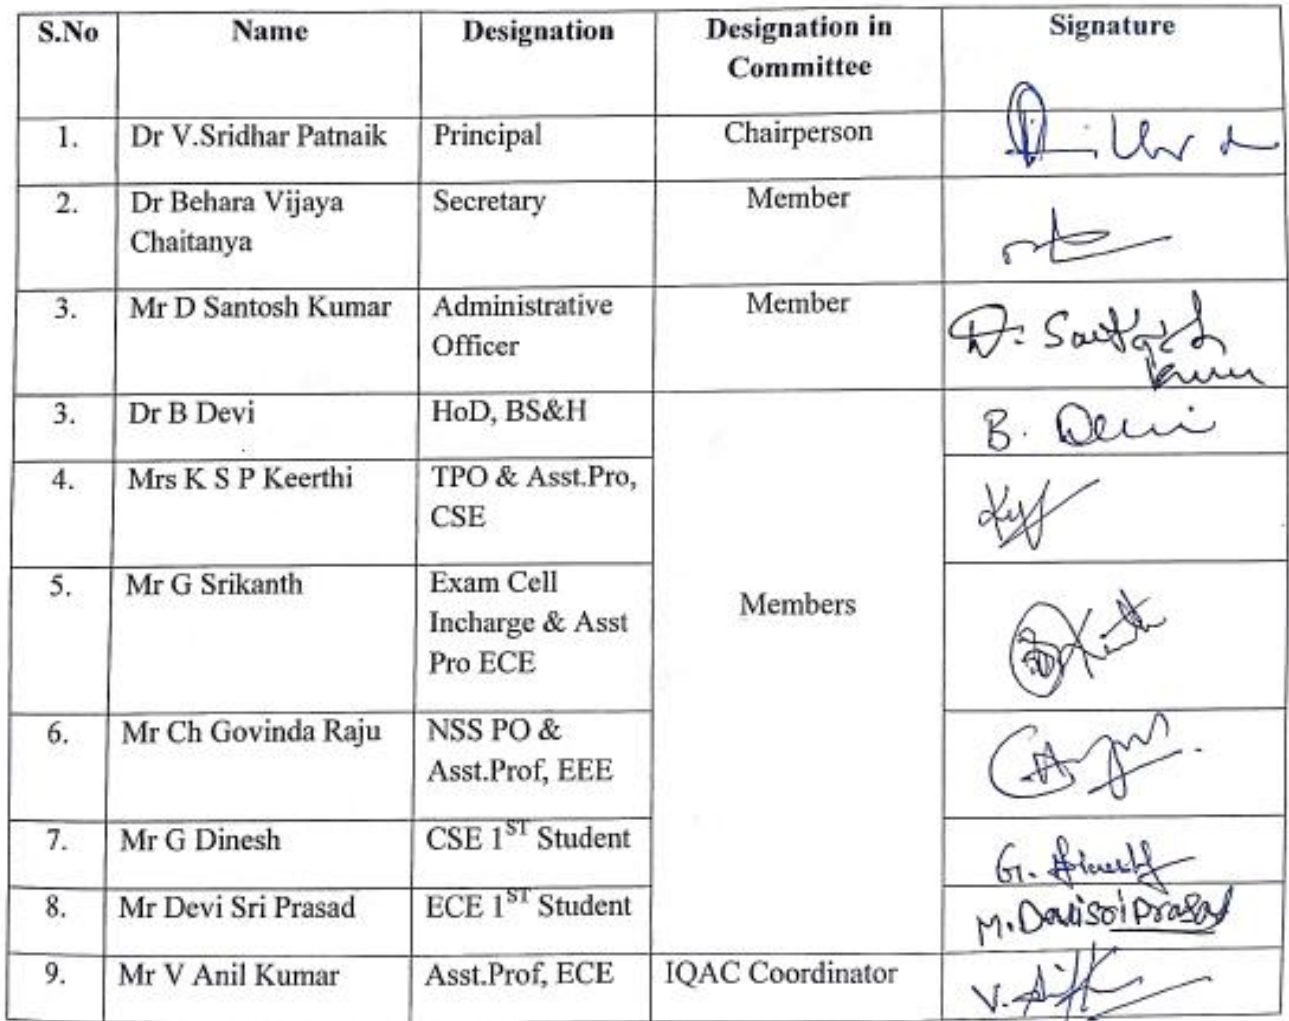 S.No Name Designation Designation in Signature
Committee
1. Dr V.Sridhar Patnaik Principal Chairperson
2. Dr Behara Vijaya Secretary Member
Chaitanya
3. Mr D Santosh Kumar Administrative Member D. Santosh
Officer Kumar
3. Dr B Devi HoD, BS&H B. Devi
4. Mrs K S P Keerthi TPO & Asst.Pro,
CSE
5. Mr G Srikanth Exam Cell
Incharge & Asst Members
Pro ECE
6. Mr Ch Govinda Raju NSS PO &
Asst.Prof, EEE
7. Mr G Dinesh CSE 1ST Student G. Dinesh
8. Mr Devi Sri Prasad ECE 1ST Student M. Devisri Prasad
9. Mr V Anil Kumar Asst.Prof, ECE IQAC Coordinator V.